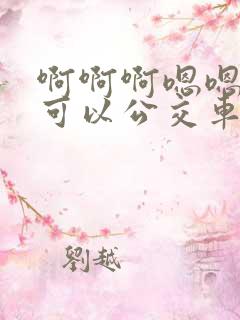 啊啊啊嗯嗯
可以公交车
劉越